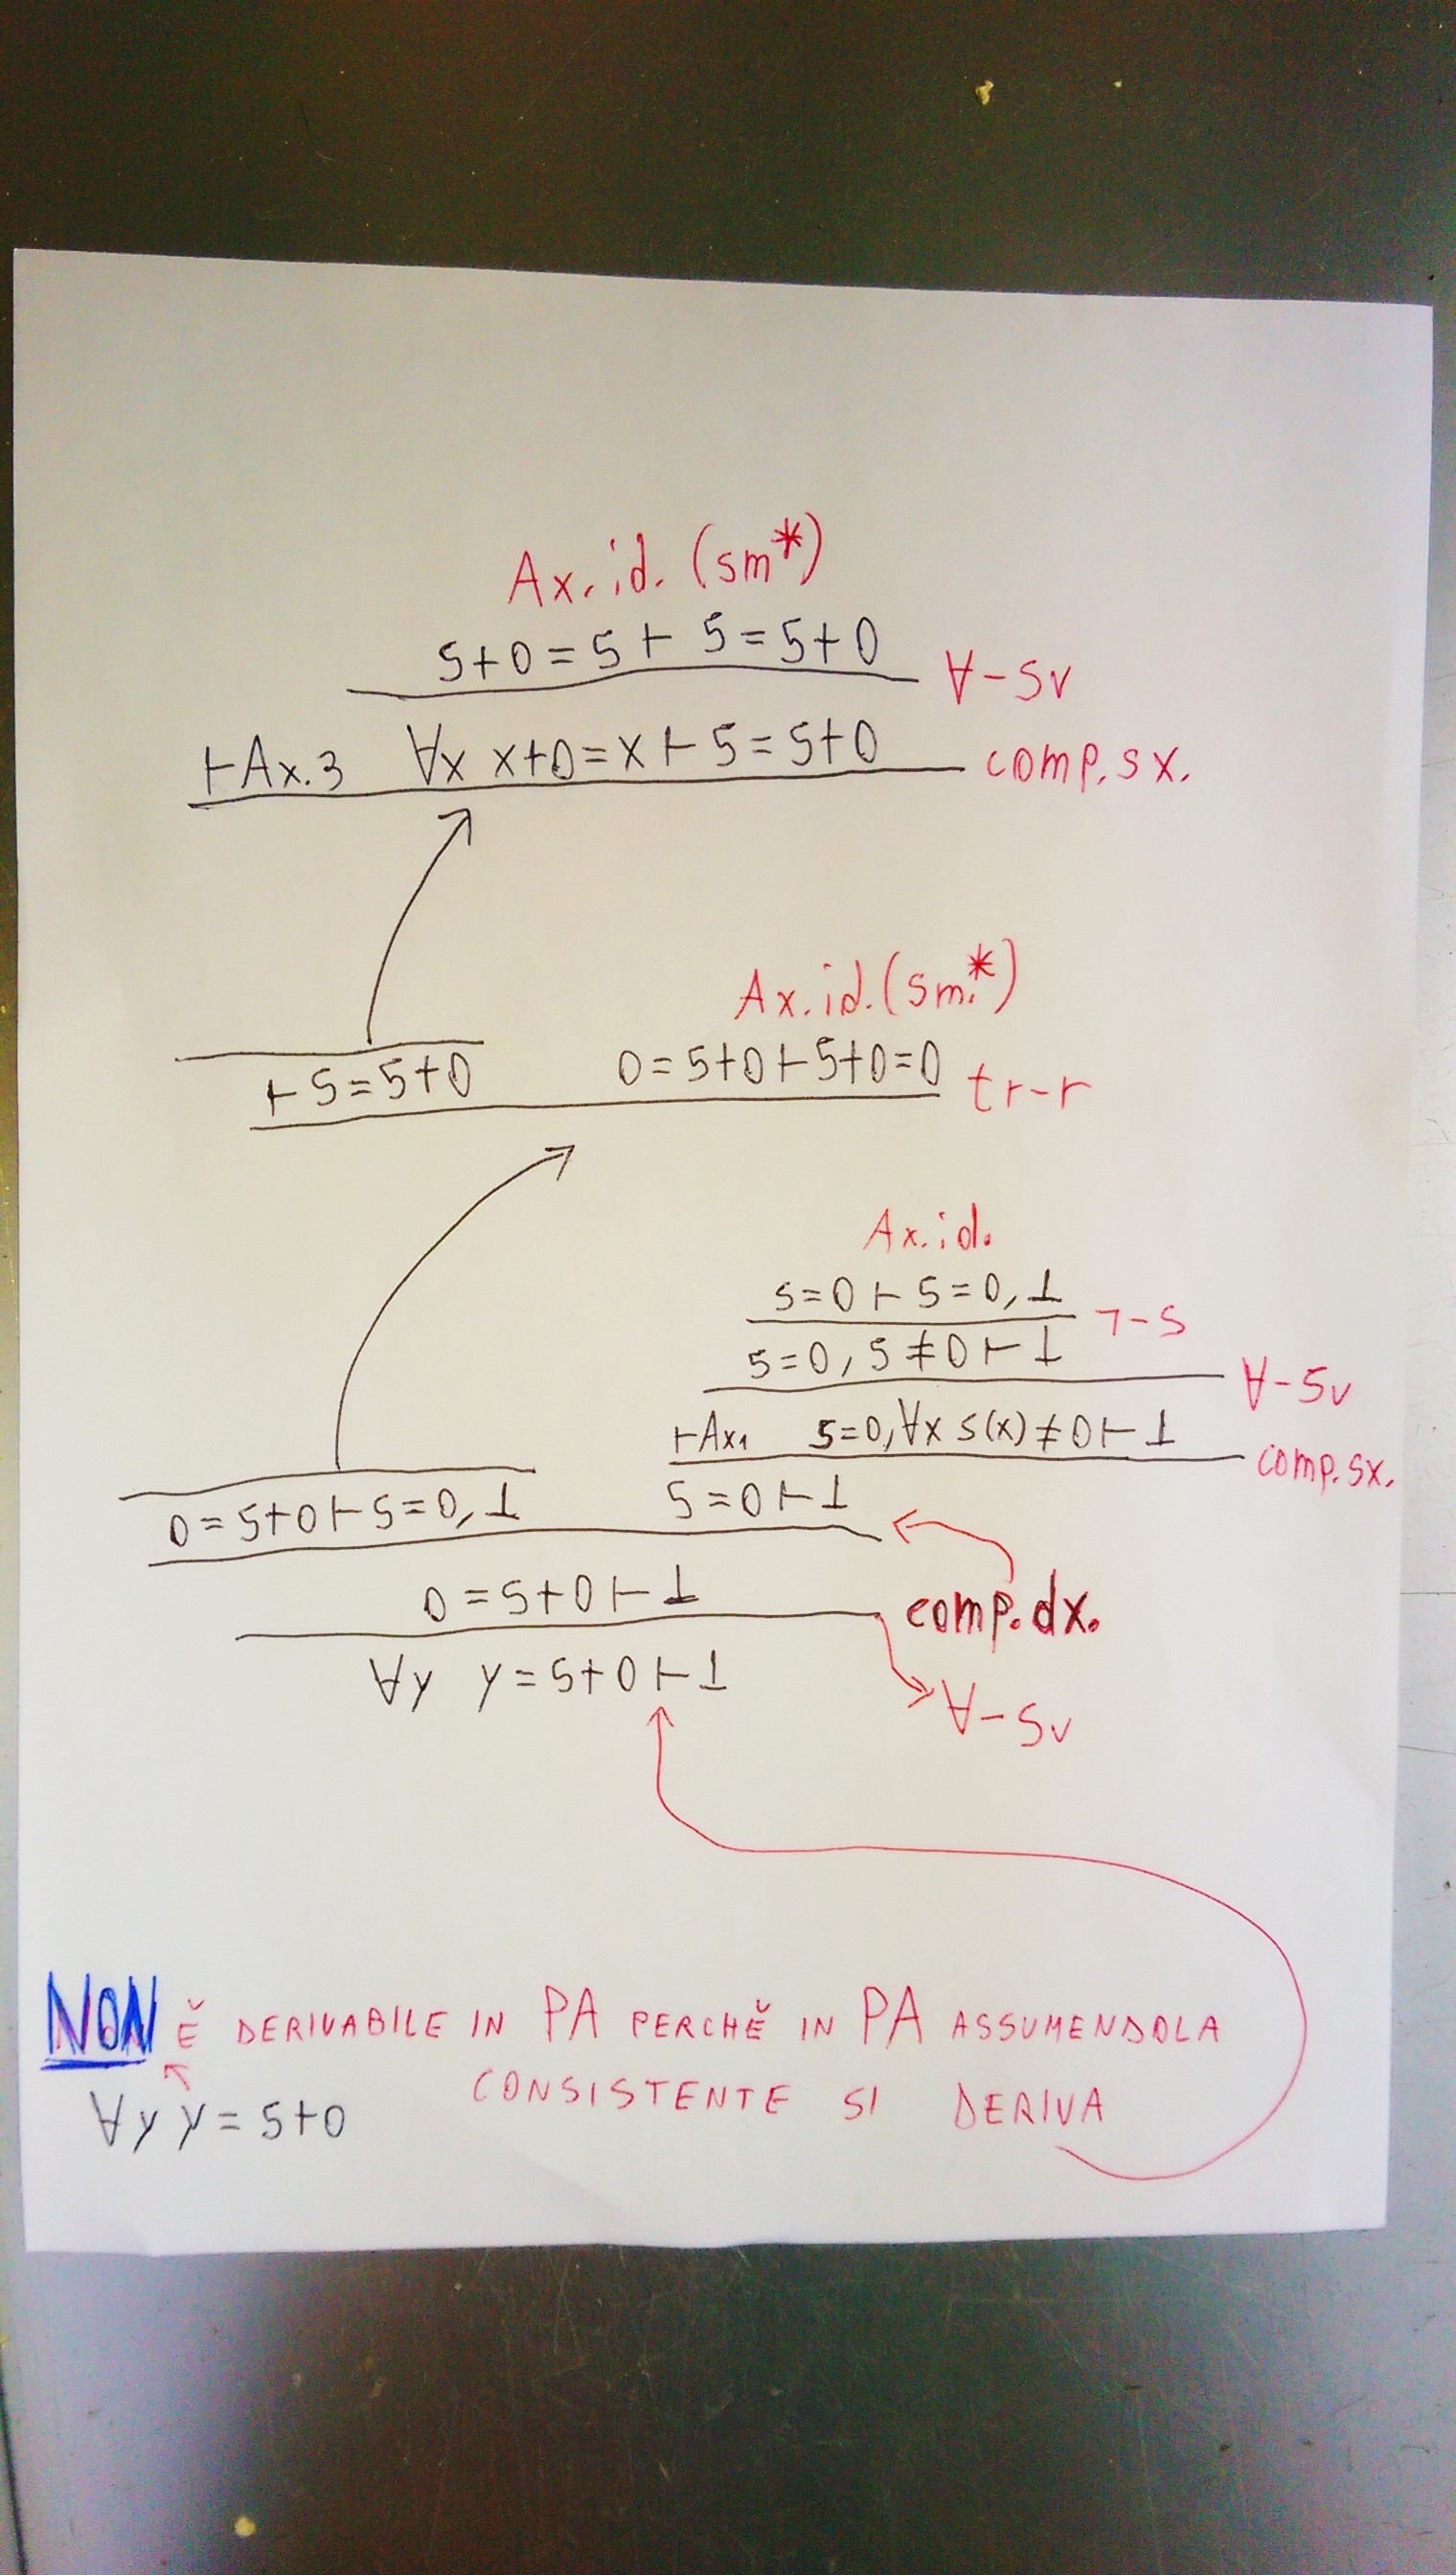 Ax. id. (sm*)
5+0=5 ⊢ 5=5+0 ∀-sv
⊢Ax.3 ∀x x+0=x ⊢ 5=5+0 comp. sx.
Ax. id. (sm.*)
⊢ 5=5+0 0=5+0 ⊢ 5+0=0 tr-r
Ax. id.
5=0 ⊢ 5=0, ⊥ ¬-S
5=0, 5≠0 ⊢ ⊥ ∀-Sv
⊢Ax1 5=0, ∀x s(x)≠0 ⊢ ⊥ comp. sx.
0=5+0 ⊢ 5=0, ⊥ 5=0 ⊢ ⊥
0=5+0 ⊢ ⊥ comp. dx.
∀y y=5+0 ⊢ ⊥ ∀-Sv
NON Ě DERIVABILE IN PA PERCHĚ IN PA ASSUMENDOLA
CONSISTENTE SI DERIVA
∀y y=5+0